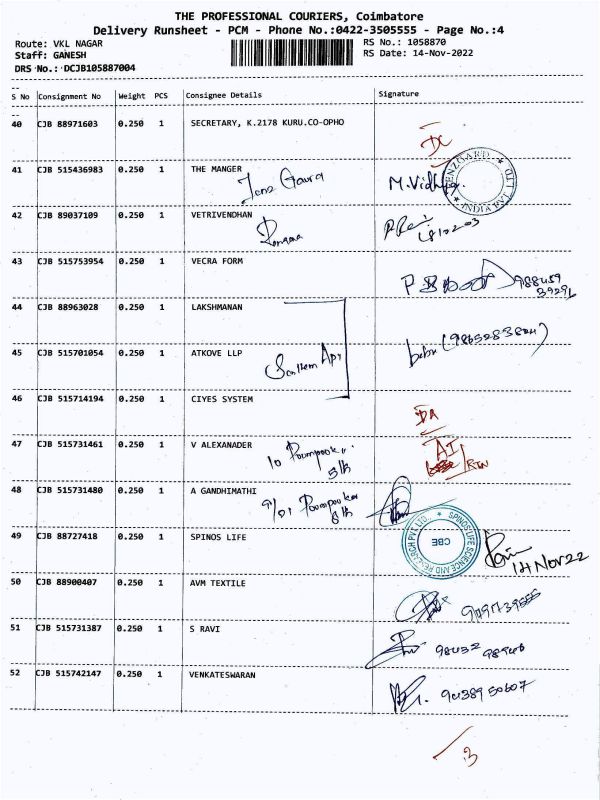 THE PROFESSIONAL COURIERS, Coimbatore
Delivery Runsheet - PCM - Phone No.:0422-3505555 - Page No.:4
Route: VKL NAGAR RS No.: 1058870
Staff: GANESH RS Date: 14-Nov-2022
DRS No.: DCJB105887004
S No Consignment No Weight PCS Consignee Details Signature
40 CJB 88971603 0.250 1 SECRETARY, K.2178 KURU.CO-OPHO
DC
41 CJB 515436983 1 0.250 1 THE MANGER
M.Vidhya
INDIA PVT LTD
42 CJB 89037109 0.250 1 VETRIVENDHAN
43 CJB 515753954 0.250 1 VECRA FORM
44 CJB 88963028 0.250 1 LAKSHMANAN
45 CJB 515701054 0.250 1 ATKOVE LLP
babu
46 CJB 515714194 0.250 1 CIYES SYSTEM
47 CJB 515731461 0.250 1 V ALEXANADER
48 CJB 515731480 0.250 1 A GANDHIMATHI
49 CJB 88727418 0.250 1 SPINOS LIFE
SPINOS LIFE SCIENCE AND RESEARCH PVT LTD.
CBE
14 Nov 22
50 CJB 88900407 0.250 1 AVM TEXTILE
51 CJB 515731387 0.250 1 S RAVI
52 CJB 515742147 0.250 1 VENKATESWARAN
9038950607